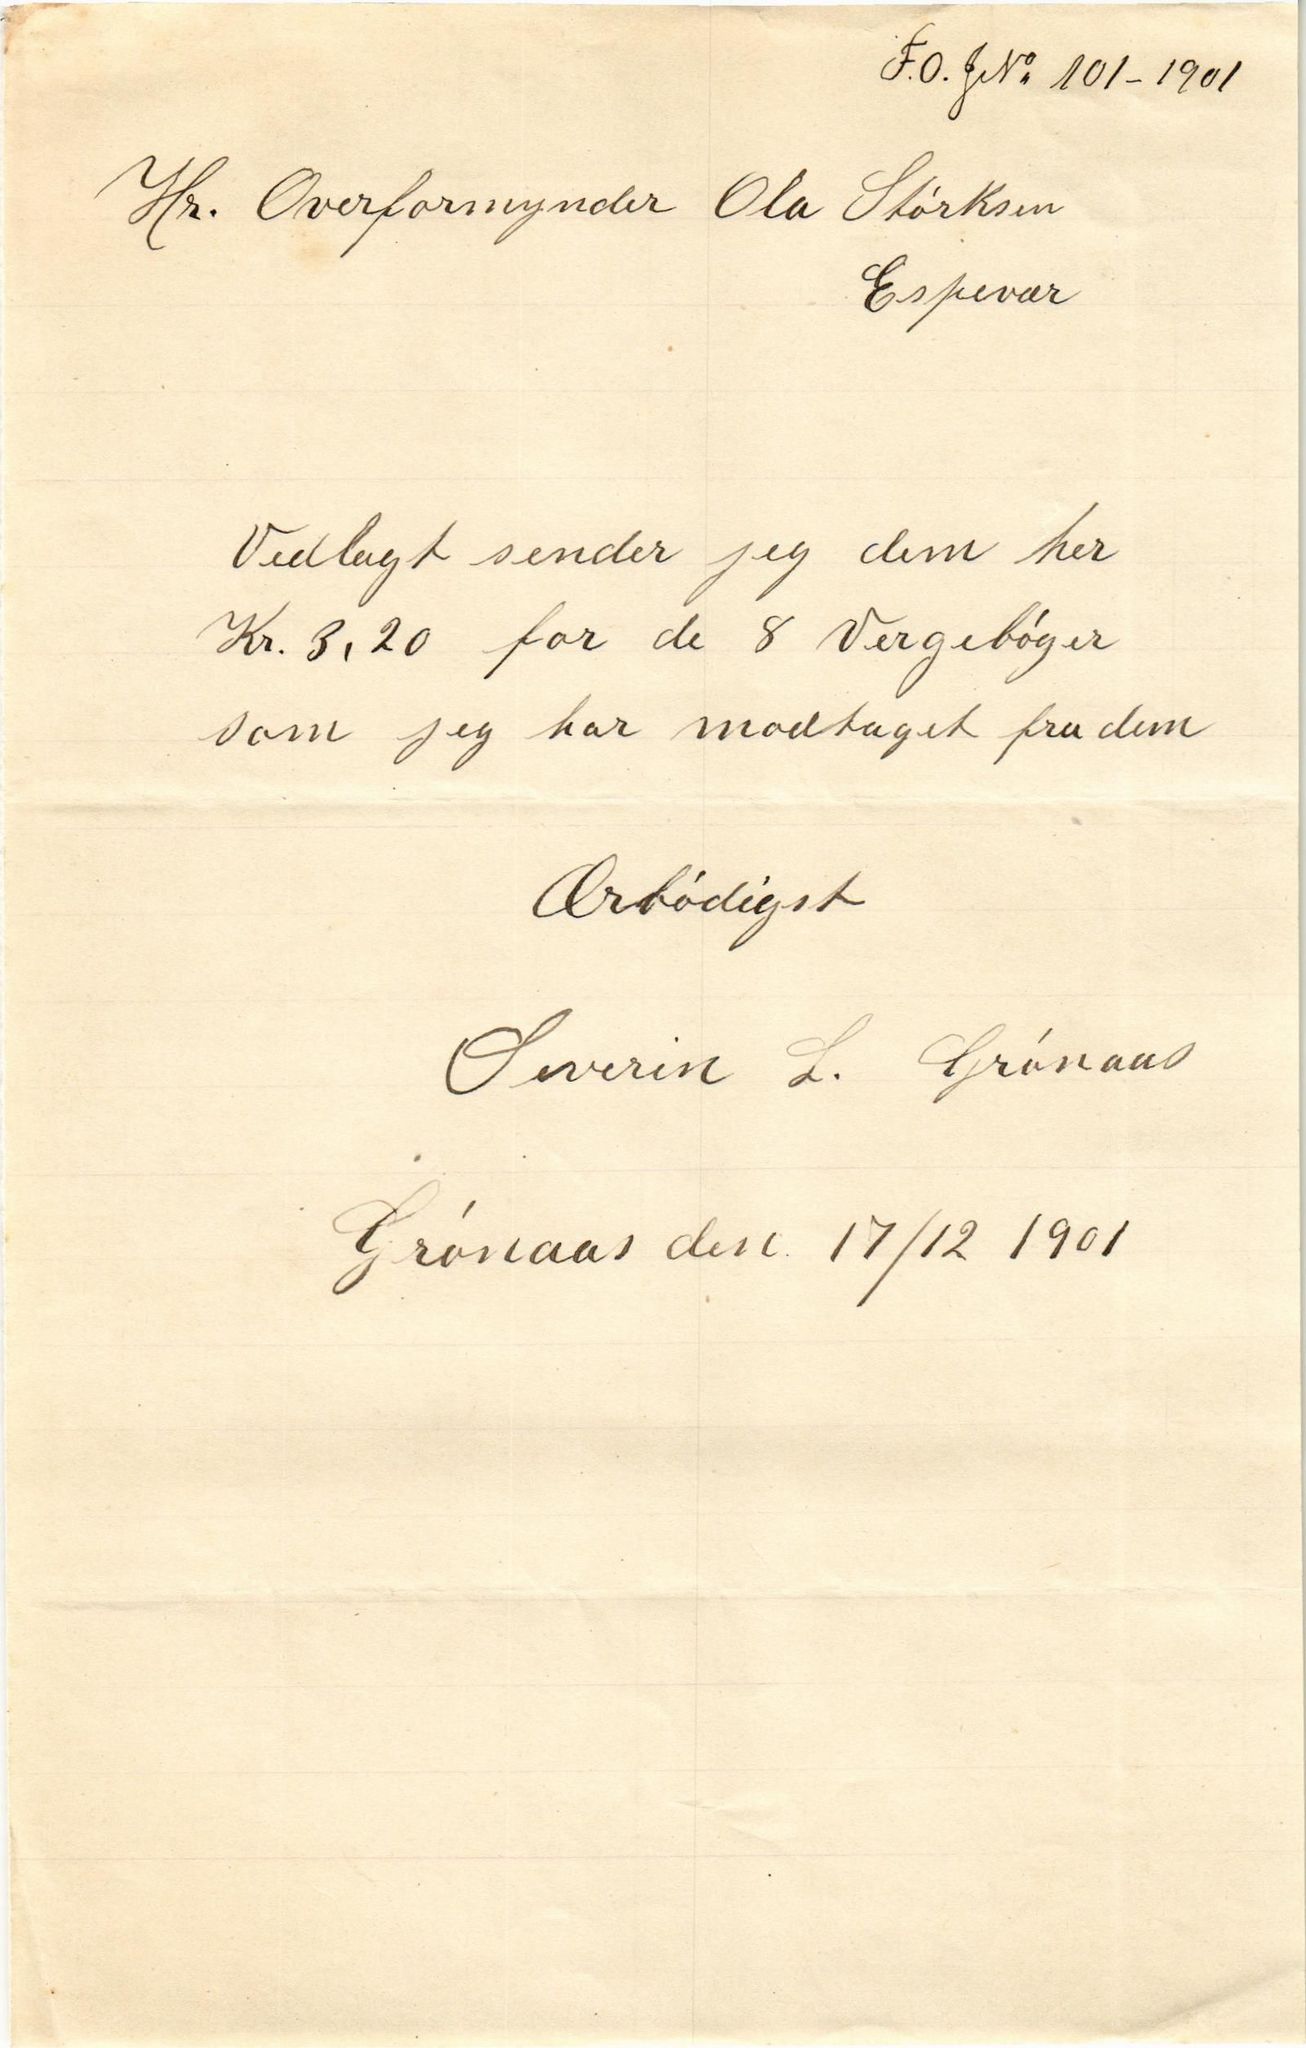 F.O. J№ 101-1901
Hr. Overformynder Ola Störksen
Espevær
Vedlagt sender jeg dem her
Kr. 3,20 for de 8 Vergebóger
som jeg har modtaget fra dem
Ærbódigst
Severin L. Grónaas
Grónaas den 17/12 1901